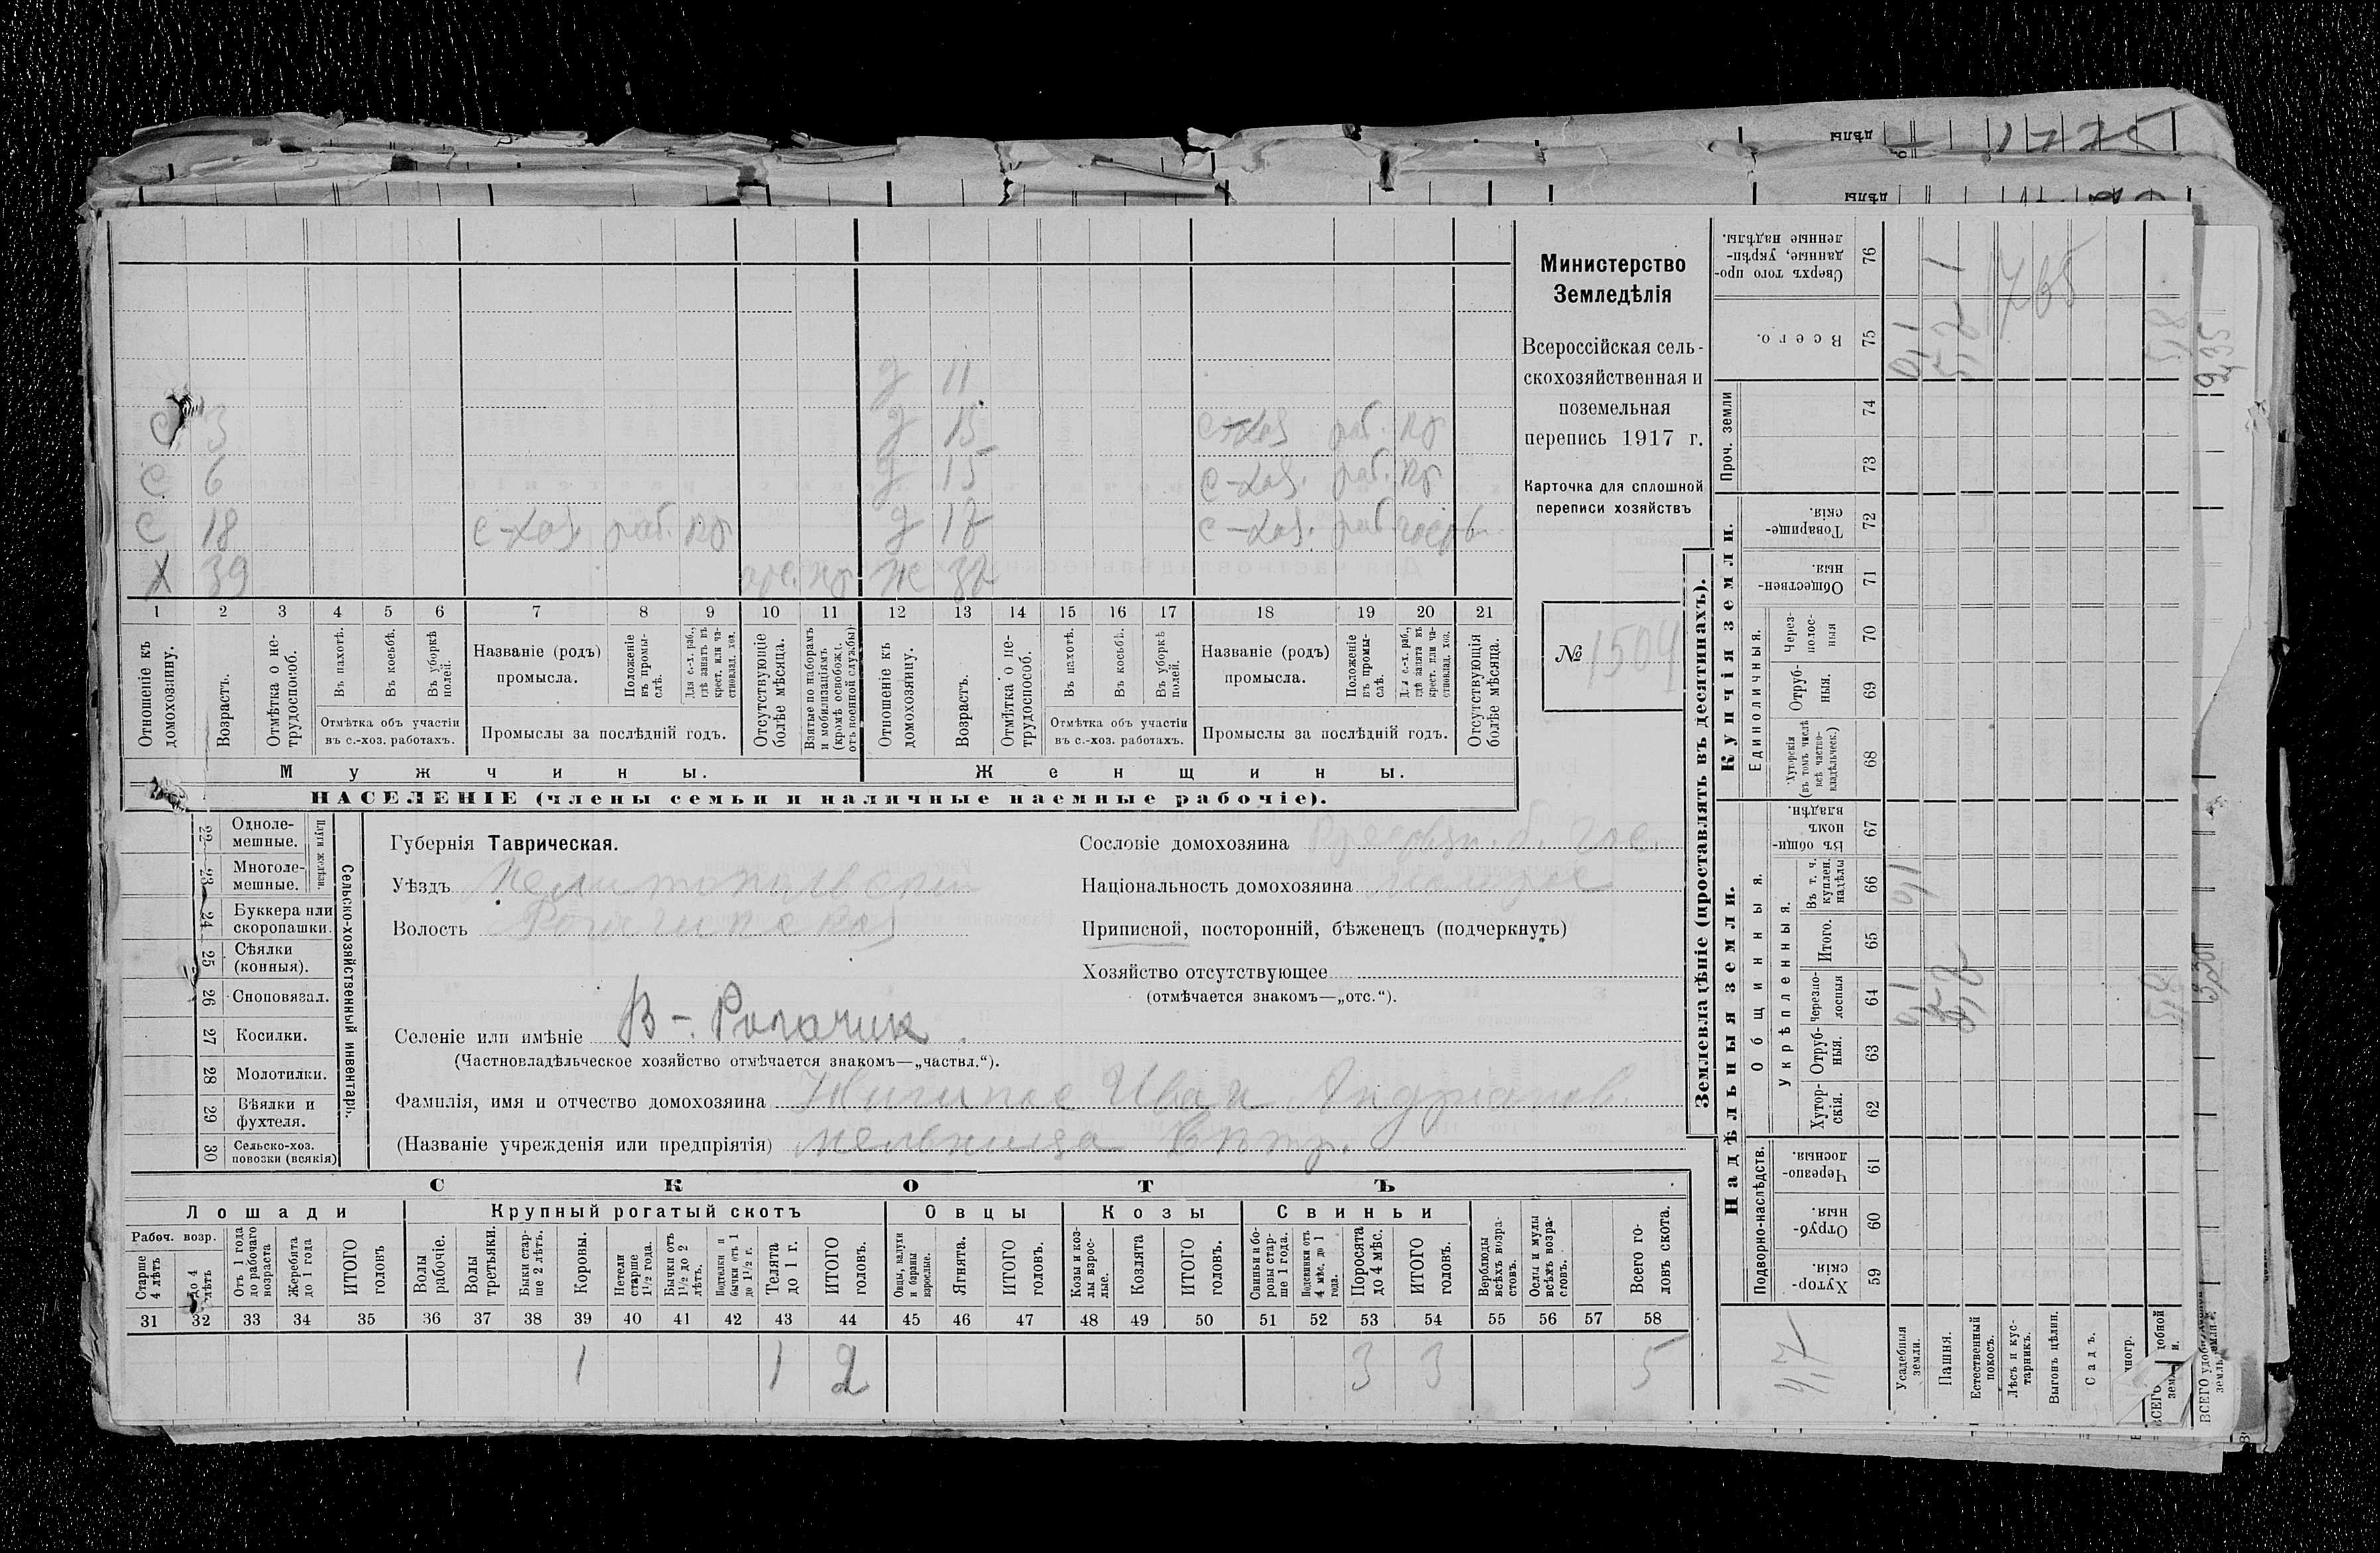 Министерство
Земледѣлія
Всероссійская сель-
скохозяйственная и
поземельная
перепись 1917 г.
Карточка для сплошной
переписи хозяйствъ
№ 1504
д 11
С 3 д 15 с-хоз раб. кр
С 6 д 15 с-хоз. раб. кр
С 18 с-хоз. раб. кр д 17 с-хоз. раб
Х 39 ж 37
1 2 3 4 5 6 7 8 9 10 11 12 13 14 15 16 17 18 19 20 21
Отношеніе къ домохозяину.
Возрастъ.
Отмѣтка о не-трудоспособ.
Въ пахотѣ.
Въ косьбѣ.
Въ уборкѣ полей.
Отмѣтка объ участіи
въ с.-хоз. работахъ.
Названіе (родъ)
промысла.
Положеніе въ промы-слѣ.
Для с.-х. раб., гдѣ занятъ въ крест. или ча-стновлад. хоз.
Промыслы за послѣдній годъ.
Отсутствующіе болѣе мѣсяца.
Взятые по наборамъ и мобилизаціямъ (кромѣ освобожд. отъ военной службы)
Отношеніе къ домохозяину.
Возрастъ.
Отмѣтка о не-трудоспособ.
Въ пахотѣ.
Въ косьбѣ.
Въ уборкѣ полей.
Отмѣтка объ участіи
въ с.-хоз. работахъ.
Названіе (родъ)
промысла.
Положеніе въ промы-слѣ.
Для с.-х. раб., гдѣ занята въ крест. или ча-стновлад. хоз.
Промыслы за послѣдній годъ.
Отсутствующія болѣе мѣсяца.
Мужчины.
Женщины.
НАСЕЛЕНІЕ (члены семьи и наличные наемные рабочіе).
22 Одноле-мешные.
23 Многоле-мешные.
Плуги желѣзн.
24 Буккера или скоропашки.
25 Сѣялки (конныя).
26 Сноповязал.
27 Косилки.
28 Молотилки.
29 Вѣялки и фухтеля.
30 Сельско-хоз. повозки (всякія)
Сельско-хозяйственный инвентарь.
Губернія Таврическая.
Уѣздъ Мелитопольскій
Волость Рогачикская
Селеніе или имѣніе В-Рогачик
(Частновладѣльческое хозяйство отмѣчается знакомъ—„частвл.“).
Сословіе домохозяина
Національность домохозяина малорос
Приписной, посторонній, бѣженецъ (подчеркнуть)
Хозяйство отсутствующее
(отмѣчается знакомъ—„отс.“).
Фамилія, имя и отчество домохозяина Иван Андрианов.
(Названіе учрежденія или предпріятія) мельница
СКОТЪ
Лошади Крупный рогатый скотъ Овцы Козы Свиньи
Рабоч. возр.
Старше 4 лѣтъ
до 4 лѣтъ
Отъ 1 года до рабочаго возраста
Жеребята до 1 года
ИТОГО головъ
Волы рабочіе.
Волы третьяки.
Быки стар-ше 2 лѣтъ.
Коровы.
Нетели старше 1½ года.
Бычки отъ 1½ до 2 лѣтъ.
Подтелки и бычки отъ 1 до 1½ г.
Телята до 1 г.
ИТОГО головъ.
Овцы, валухи и бараны взрослые.
Ягнята.
ИТОГО головъ.
Козы и коз-лы взрос-лые.
Козлята
ИТОГО головъ.
Свиньи и бо-ровы стар-ше 1 года.
Подсвинки отъ 4 мѣс. до 1 года.
Поросята до 4 мѣс.
ИТОГО головъ.
Верблюды всѣхъ возра-стовъ.
Ослы и мулы всѣхъ возра-стовъ.
Всего го-ловъ скота.
31 32 33 34 35 36 37 38 39 40 41 42 43 44 45 46 47 48 49 50 51 52 53 54 55 56 57 58
1 1 2 3 3 5
Землевладѣніе (проставлять въ десятинахъ).
Купчія земли.
Надѣльныя земли.
Сверхъ того про-данные, укрѣп-ленные надѣлы. 76
Всего. 75
Проч. земли 74
73
Товарище-скія. 72
Обществен-ныя. 71
Единоличныя.
Через-полос-ныя 70
Отруб-ныя. 69
Хуторскія (въ томъ числѣ всѣ частно-владѣльческ.) 68
Общинныя.
Въ общи-номъ владѣн. 67
Укрѣпленныя.
Въ т. ч. куплен. надѣлы 66
Итого. 65
Черезпо-лосныя 64
Отруб-ныя. 63
Хутор-скія. 62
Подворно-наслѣдств.
Черезпо-лосныя. 61
Отруб-ныя. 60
Хутор-скія. 59
Усадебныя земли.
Пашня.
Естественный покосъ.
Лѣсъ и кус-тарникъ.
Выгонъ цѣлин.
Садъ.